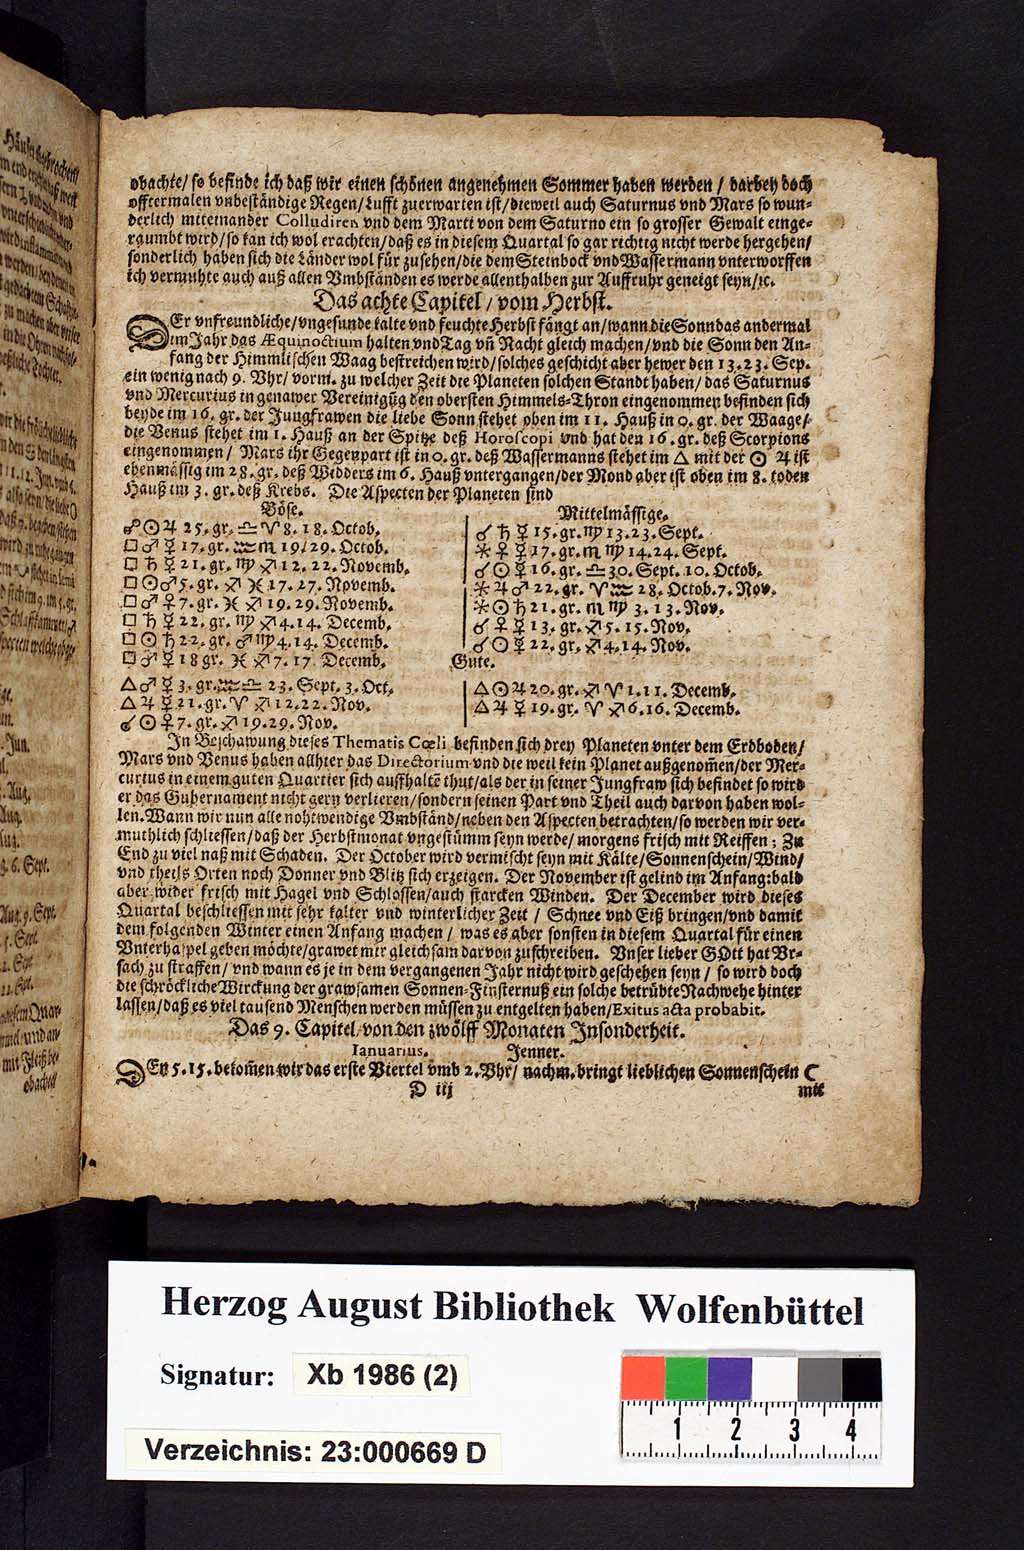 obachte/ so befinde ich daß wir einen schönen angenehmen Sommer haben werden / darbey doch
offtermalen vnbeständige Regen/ Lufft zuerwarten ist/ dieweil auch Saturnus vnd Mars so wun-
derlich miteinander Colludiren vnd dem Marti von dem Saturno ein so grosser Gewalt einge-
raumbt wird/ so kan ich wol erachten/ daß es in diesem Quartal so gar richtig nicht werde hergehen/
sonderlich haben sich die Länder wol für zusehen/ die dem Steinbock vnd Wassermann vnterworffen
ich vermuhte auch auß allen Vmbständen es werde allenthalben zur Auffruhr geneigt seyn/ ꝛc.
Das achte Capitel / vom Herbst.
DEr vnfreundliche/ vngesunde kalte vnd feuchte Herbst fängt an/ wann die Sonn das andermal
im Jahr das Æquinoctium halten vnd Tag vñ Nacht gleich machen/ vnd die Sonn den An-
fang der Himmlischen Waag bestreichen wird/ solches geschicht aber hewer den 13. 23. Sep.
ein wenig nach 9. Vhr/ vorm. zu welcher Zeit die Planeten solchen Standt haben/ das Saturnus
vnd Mercurius in genawer Vereinigũg den obersten Himmels-Thron eingenommen befinden sich
beyde im 16. gr. der Jungfrawen die liebe Sonn stehet oben im 11. Hauß in 0. gr. der Waage/
die Venus stehet im 1. Hauß an der Spitze deß Horoscopi vnd hat den 16. gr. deß Scorpions
eingenommen / Mars ihr Gegenpart ist in 0. gr. deß Wassermanns stehet im △ mit der ☉ ♃ ist
ebenmässig im 28. gr. deß Widders im 6. Hauß vntergangen/ der Mond aber ist oben im 8. toden
Hauß im 3. gr. deß Krebs. Die Aspecten der Planeten sind
Böse.
☍ ☉ ♃ 25. gr. ♎ ♈ 8. 18. Octob.
□ ♂ ☿ 17. gr. ♒ ♏ 19/ 29. Octob.
□ ♄ ☿ 21. gr. ♍ ♐ 12. 22. Novemb.
□ ☉ ♂ 5. gr. ♐ ♓ 17. 27. Novemb.
□ ♂ ♀ 7. gr. ♓ ♐ 19. 29. Novemb.
□ ♄ ☿ 22. gr. ♍ ♐ 4. 14. Decemb.
□ ☉ ♄ 22. gr. ♂ ♍ 4. 14. Decemb.
□ ♂ ☿ 18 gr. ♓ ♐ 7. 17 Decemb.
Mittelmässige.
☌ ♄ ☿ 15. gr. ♍ 13. 23. Sept.
⚹ ♀ ☿ 17. gr. ♏ ♍ 14. 24. Sept.
☌ ☉ ☿ 16. gr. ♎ 30. Sept. 10. Octob.
⚹ ♃ ♂ 22. gr. ♈ ♒ 28. Octob. 7. Nov.
⚹ ☉ ♄ 21. gr. ♏ ♍ 3. 13. Nov.
☌ ♀ ☿ 13. gr. ♐ 5. 15. Nov.
☌ ☉ ☿ 22. gr. ♐ 4. 14. Nov.
Gute.
△ ♂ ☿ 3. gr. ♒ ♎ 23. Sept. 3. Oct.
△ ♃ ☿ 21. gr. ♈ ♐ 12. 22. Nov.
☌ ☉ ♀ 7. gr. ♐ 19. 29. Nov.
△ ☉ ♃ 20. gr. ♐ ♈ 1. 11. Decemb.
△ ♃ ☿ 19. gr. ♈ ♐ 6. 16. Decemb.
In Beschawung dieses Thematis Cœli befinden sich drey Planeten vnter dem Erdboden/
Mars vnd Venus haben allhier das Directorium vnd die weil kein Planet außgenom̃en/ der Mer-
curius in einem guten Quartier sich auffhaltẽ thut/ als der in seiner Jungfraw sich befindet so wird
er das Gubernament nicht gern verlieren/ sondern seinen Part vnd Theil auch darvon haben wol-
len. Wann wir nun alle nohtwendige Vmbständ/ neben den Aspecten betrachten/ so werden wir ver-
muthlich schliessen/ daß der Herbstmonat vngestümm seyn werde/ morgens frisch mit Reiffen; Zu
End zu viel naß mit Schaden. Der October wird vermischt seyn mit Kälte/ Sonnenschein/ Wind/
vnd theils Orten noch Donner vnd Blitz sich erzeigen. Der November ist gelind im Anfang: bald
aber wider frisch mit Hagel vnd Schlossen/ auch starcken Winden. Der December wird dieses
Quartal beschliessen mit sehr kalter vnd winterlicher Zeit / Schnee vnd Eiß bringen/ vnd damit
dem folgenden Winter einen Anfang machen / was es aber sonsten in diesem Quartal für einen
Vnterhaspel geben möchte/ grawet mir gleichsam darvon zuschreiben. Vnser lieber GOtt hat Vr-
sach zu straffen/ vnd wann es je in dem vergangenen Jahr nicht wird geschehen seyn / so wird doch
die schröckliche Wirckung der grawsamen Sonnen-Finsternuß ein solche betrübte Nachwehe hinter
lassen/ daß es viel tausend Menschen werden müssen zu entgelten haben/ Exitus acta probabit.
Das 9. Capitel/ von den zwölff Monaten Insonderheit.
Ianuarius. Jenner.
DEn 5. 15. bekom̃en wir das erste Viertel vmb 2. Vhr/ nachm. bringt lieblichen Sonnenschein ☾
D iij
mit
Herzog August Bibliothek Wolfenbüttel
Signatur: Xb 1986 (2)
Verzeichnis: 23:000669 D
1 2 3 4